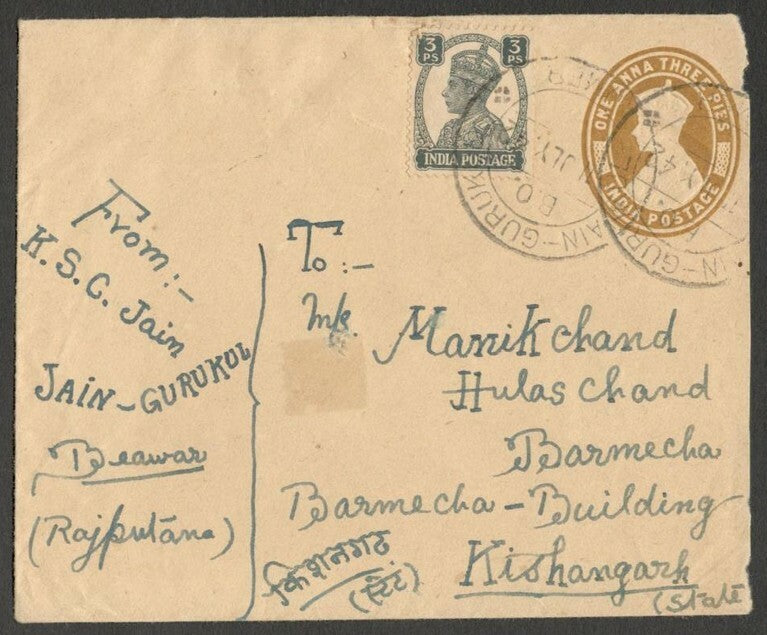 3 PS 3 PS
INDIA POSTAGE
ONE ANNA THREE PIES
INDIA POSTAGE
JAIN-GURUK
B.O.
JLY 42
From:-
K.S.C. Jain
JAIN-GURUKUL
Beawar
(Rajputana)
To:-
M/s.
Manikchand
Hulas Chand
Barmecha
Barmecha-Building
किशनगढ
(स्टेट)
Kishangarh
(State